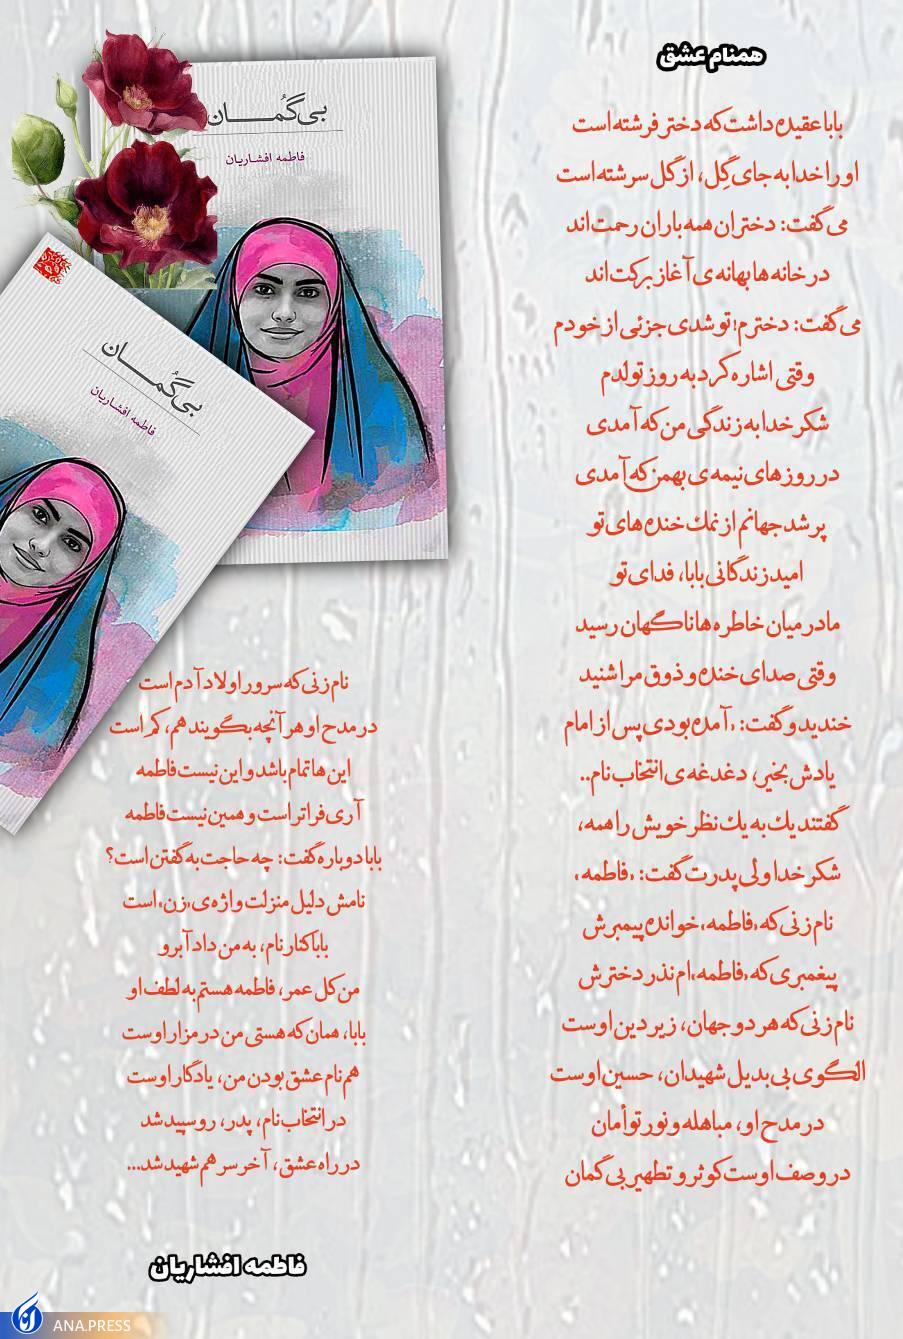 همنام عشق
بابا عقیده داشت که دختر فرشته است
او را خدا به جای گِل، از گل سرشته است
می‌گفت: دختران همه باران رحمت‌اند
در خانه‌ها بهانه‌ی آغاز برکت‌اند
می‌گفت: دخترم! تو شدی جزئی از خودم
وقتی اشاره کرد به روز تولدم
شکر خدا به زندگی من که آمدی
در روزهای نیمه‌ی بهمن که آمدی
پر شد جهانم از نمک خنده‌های تو
امید زندگانی بابا، فدای تو
مادر میان خاطره‌ها ناگهان رسید
وقتی صدای خنده و ذوق مرا شنید
خندید و گفت: «آمده بودی پس از امام
یادش بخیر، دغدغه‌ی انتخاب نام..
گفتند یک به یک نظر خویش را همه،
شکر خدا ولی پدرت گفت: «فاطمه»
نام زنی که «فاطمه» خوانده پیمبرش
پیغمبری که «فاطمه» ام نذر دخترش
نام زنی که هر دو جهان، زیر دین اوست
الگوی بی بدیل شهیدان، حسین اوست
در مدح او، مباهله و نور توأمان
در وصف اوست کوثر و تطهیر بی گمان
نام زنی که سرور اولاد آدم است
در مدح او هر آنچه بگویند هم، کم است
این‌ها تمام باشد و این نیست فاطمه
آری فراتر است و همین نیست فاطمه
بابا دوباره گفت: چه حاجت به گفتن است؟
نامش دلیل منزلت واژه‌ی «زن» است
بابا کنار نام، به من داد آبرو
من کل عمر، فاطمه هستم به لطف او
بابا، همان که هستی من در مزار اوست
هم نام عشق بودن من، یادگار اوست
در انتخاب نام، پدر، روسپید شد
در راه عشق، آخر سر هم شهید شد...
فاطمه افشاریان
بی‌گُمان
فاطمه افشاریان
بی‌گُمان
فاطمه افشاریان
آنا
ANA.PRESS